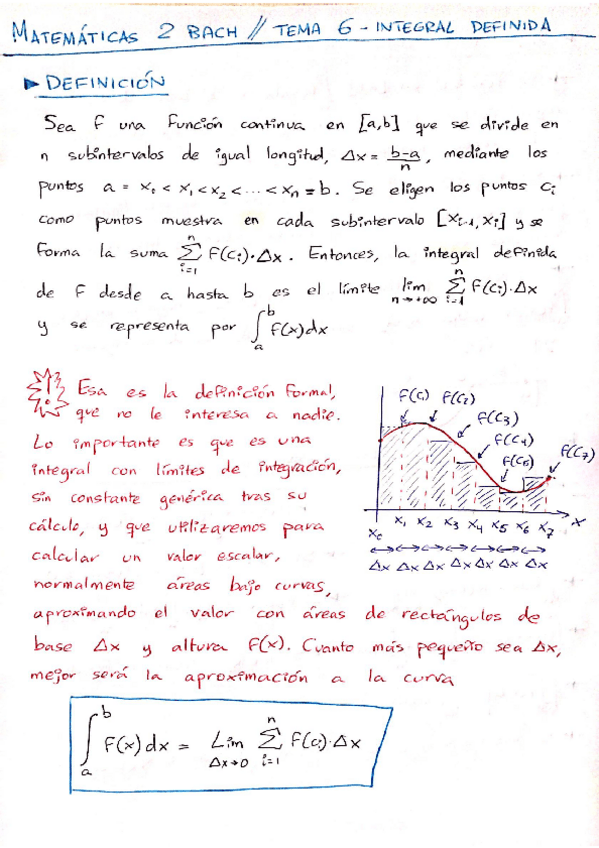 MATEMÁTICAS 2 BACH // TEMA 6 - INTEGRAL DEFINIDA
► DEFINICIÓN
Sea f una función continua en [a,b] que se divide en
n subintervalos de igual longitud, Δx = b-a/n, mediante los
puntos a = x₀ < x₁ < x₂ < ... < xₙ = b. Se eligen los puntos cᵢ
como puntos muestra en cada subintervalo [xᵢ₋₁, xᵢ] y se
forma la suma Σⁿᵢ₌₁ f(cᵢ)·Δx. Entonces, la integral definida
de f desde a hasta b es el límite lim n→+∞ Σⁿᵢ₌₁ f(cᵢ)·Δx
y se representa por ∫ₐᵇ f(x)dx
¡! Esa es la definición formal,
que no le interesa a nadie.
Lo importante es que es una
integral con límites de integración,
sin constante genérica tras su
cálculo, y que utilizaremos para
calcular un valor escalar,
normalmente áreas bajo curvas,
aproximando el valor con áreas de rectángulos de
base Δx y altura f(x). Cuanto más pequeño sea Δx,
mejor será la aproximación a la curva
f(c₁) f(c₂)
f(c₃)
f(c₄)
f(c₅)
f(c₇)
x₀ x₁ x₂ x₃ x₄ x₅ x₆ x₇ x
Δx Δx Δx Δx Δx Δx Δx
∫ₐᵇ f(x)dx = Lim Δx→0 Σⁿᵢ₌₁ f(cᵢ)·Δx